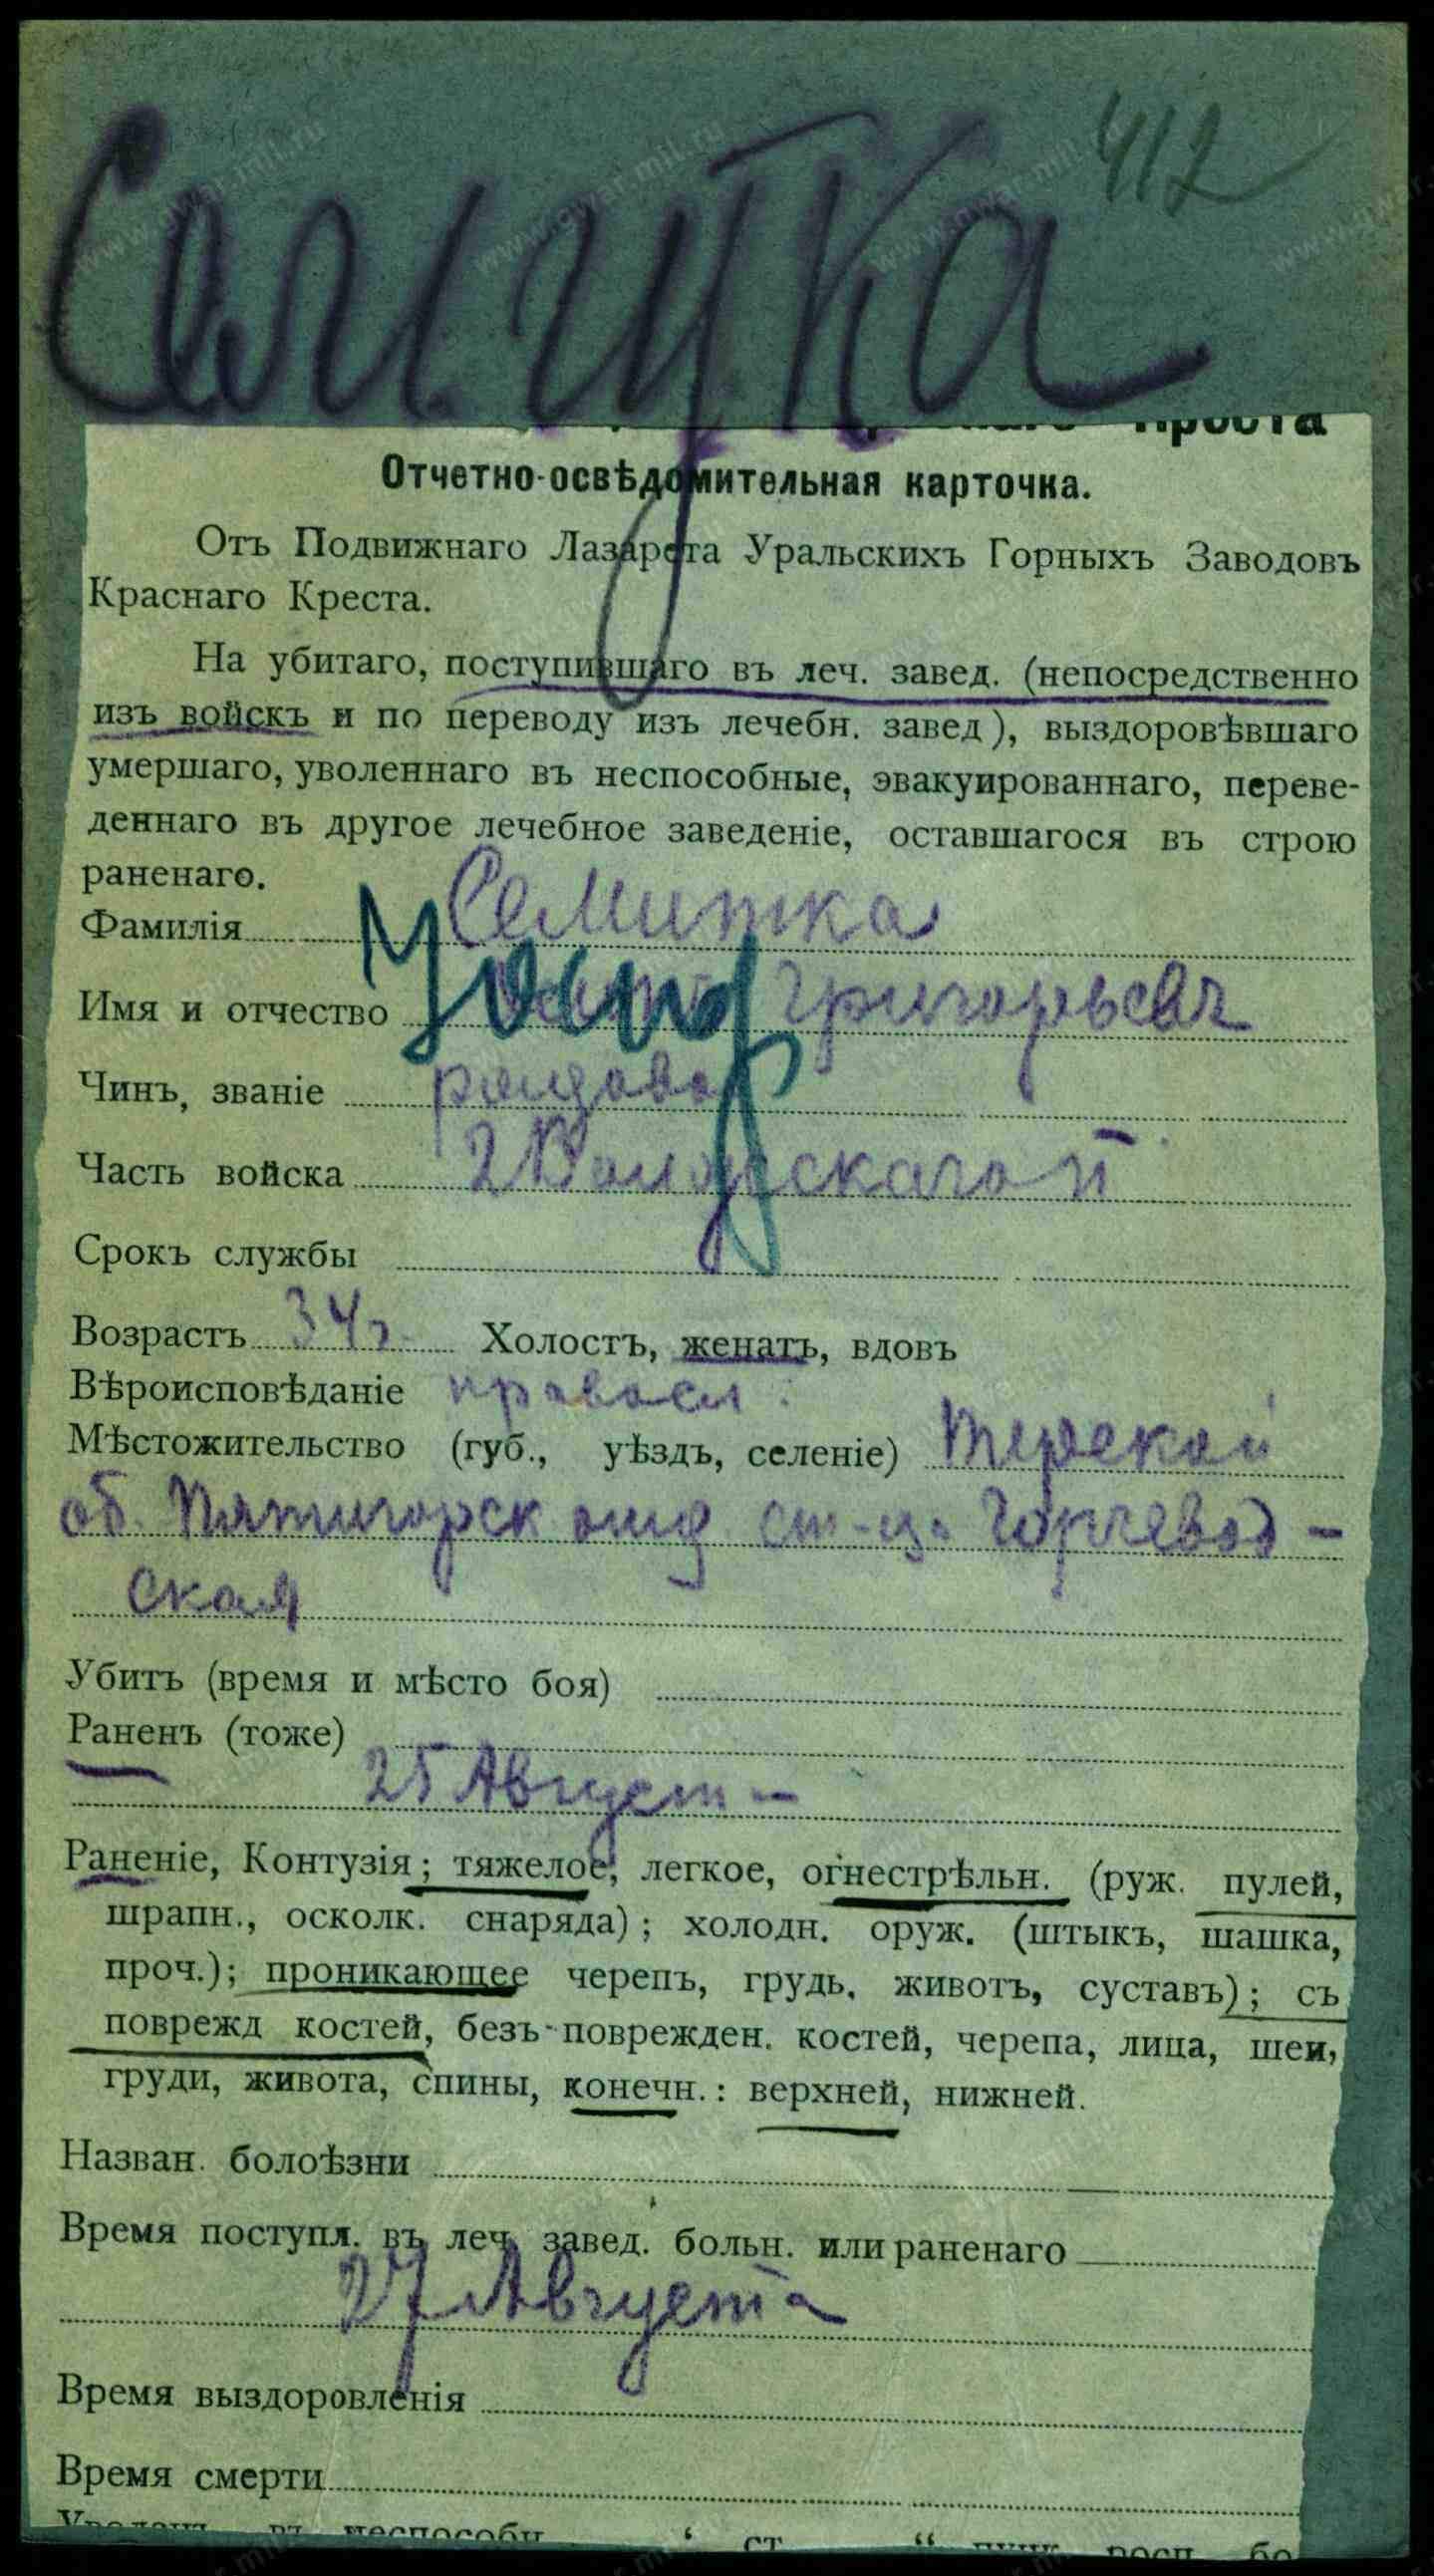 412
Семитка
Отчетно-освѣдомительная карточка.
Отъ Подвижнаго Лазарета Уральскихъ Горныхъ Заводовъ
Краснаго Креста.
На убитаго, поступившаго въ леч. завед. (непосредственно
изъ войскъ и по переводу изъ лечебн. завед), выздоровѣвшаго
умершаго, уволеннаго въ неспособные, эвакуированнаго, переве-
деннаго въ другое лечебное заведеніе, оставшагося въ строю
раненаго.
Фамилія Семитка
Имя и отчество Григорьевъ
Чинъ, званіе
Часть войска 2
Срокъ службы
Возрастъ 34 г. Холостъ, женатъ, вдовъ
Вѣроисповѣданіе правосл.
Мѣстожительство (губ., уѣздъ, селеніе) Терской
об. Пятигорск отд ст-ца Горячевод-
ская
Убитъ (время и мѣсто боя)
Раненъ (тоже)
25 Август
Раненіе, Контузія; тяжелое, легкое, огнестрѣльн. (руж. пулей,
шрапн., осколк. снаряда); холодн. оруж. (штыкъ, шашка,
проч.); проникающее черепъ, грудь, животъ, суставъ); съ
поврежд костей, безъ-поврежден. костей, черепа, лица, шеи,
груди, живота, спины, конечн.: верхней, нижней.
Назван. болоѣзни
Время поступл. въ леч. завед. больн. или раненаго
27 Августа
Время выздоровленія
Время смерти